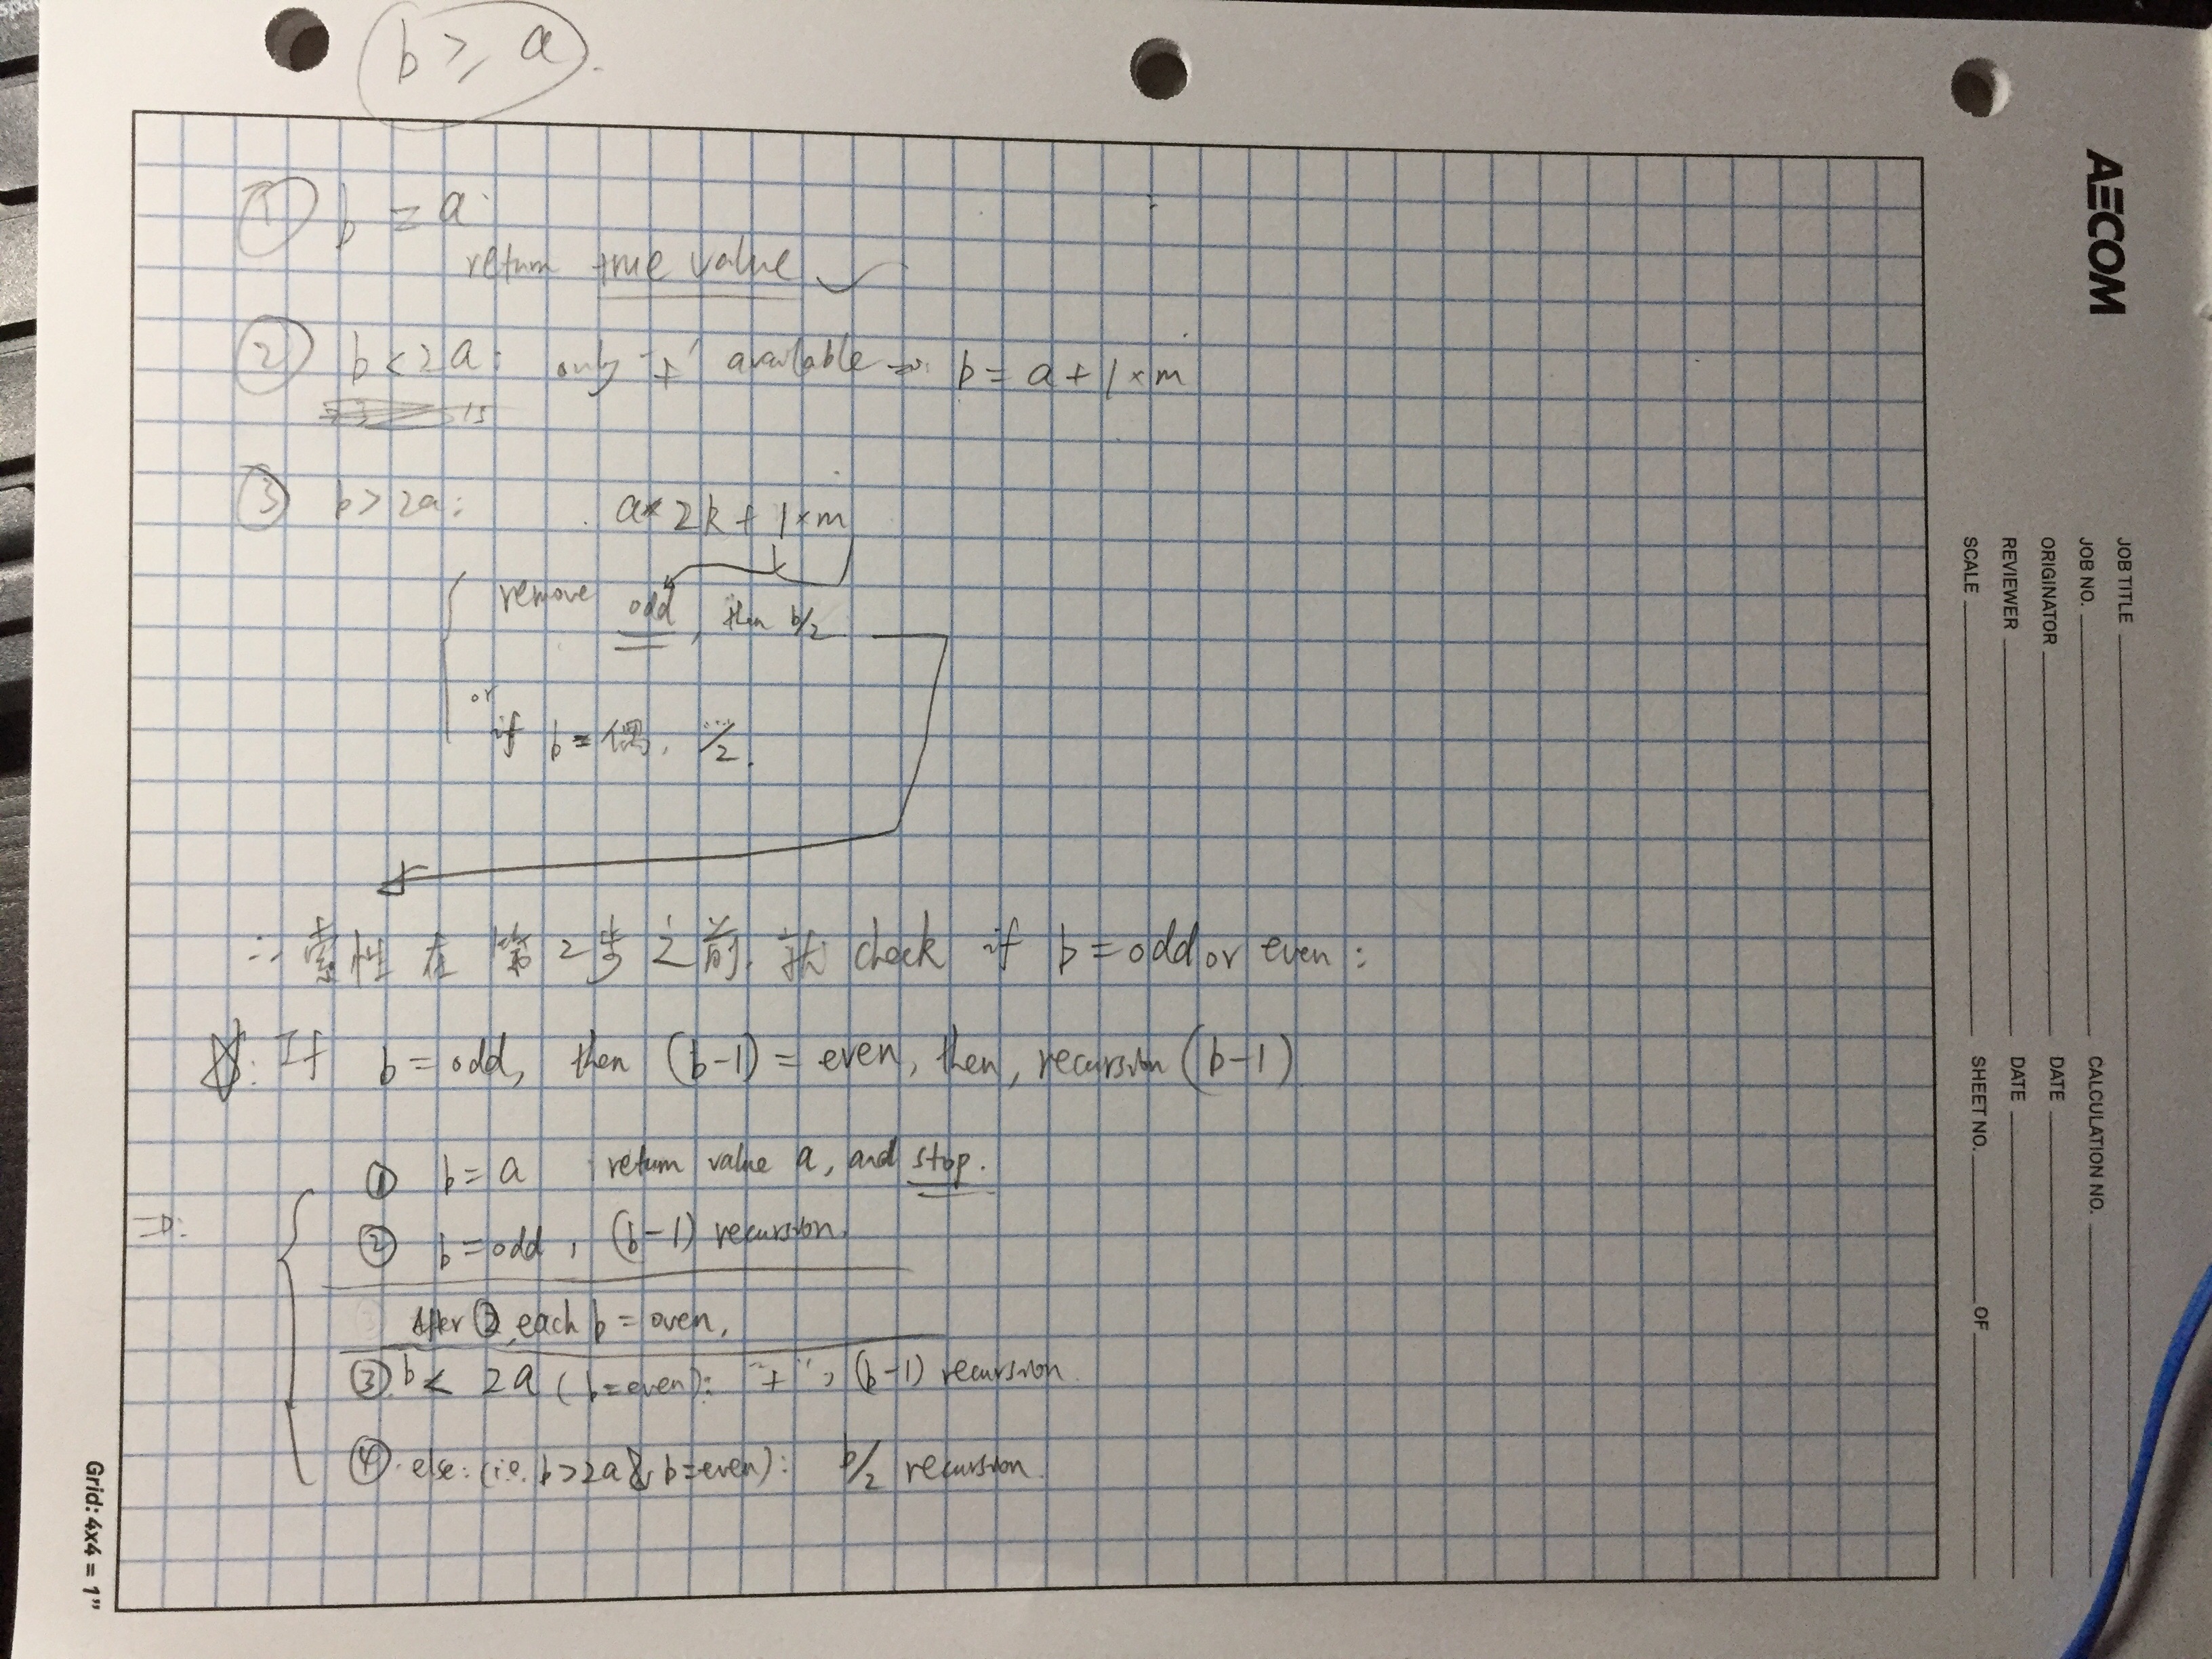 b ≥ a.
① b = a:
return true value ✓
② b < 2a: only "+" available ⇒ b = a + 1 × m
③ b > 2a: a × 2k + 1 × m
remove odd, then b/2
or
if b = 偶, …/2.
∴ 索性在第2步之前, 就 check if b = odd or even:
☆: If b = odd, then (b-1) = even, then, recursion (b-1)
⇒:
① b = a : return value a, and stop.
② b = odd, (b-1) recursion.
After ②, each b = even,
③ b < 2a (b=even): "+", (b-1) recursion.
④ else: (i.e. b>2a & b=even): b/2 recursion.
AECOM
JOB TITLE
JOB NO. CALCULATION NO.
ORIGINATOR DATE
REVIEWER DATE
SCALE SHEET NO. OF
Grid: 4x4 = 1"